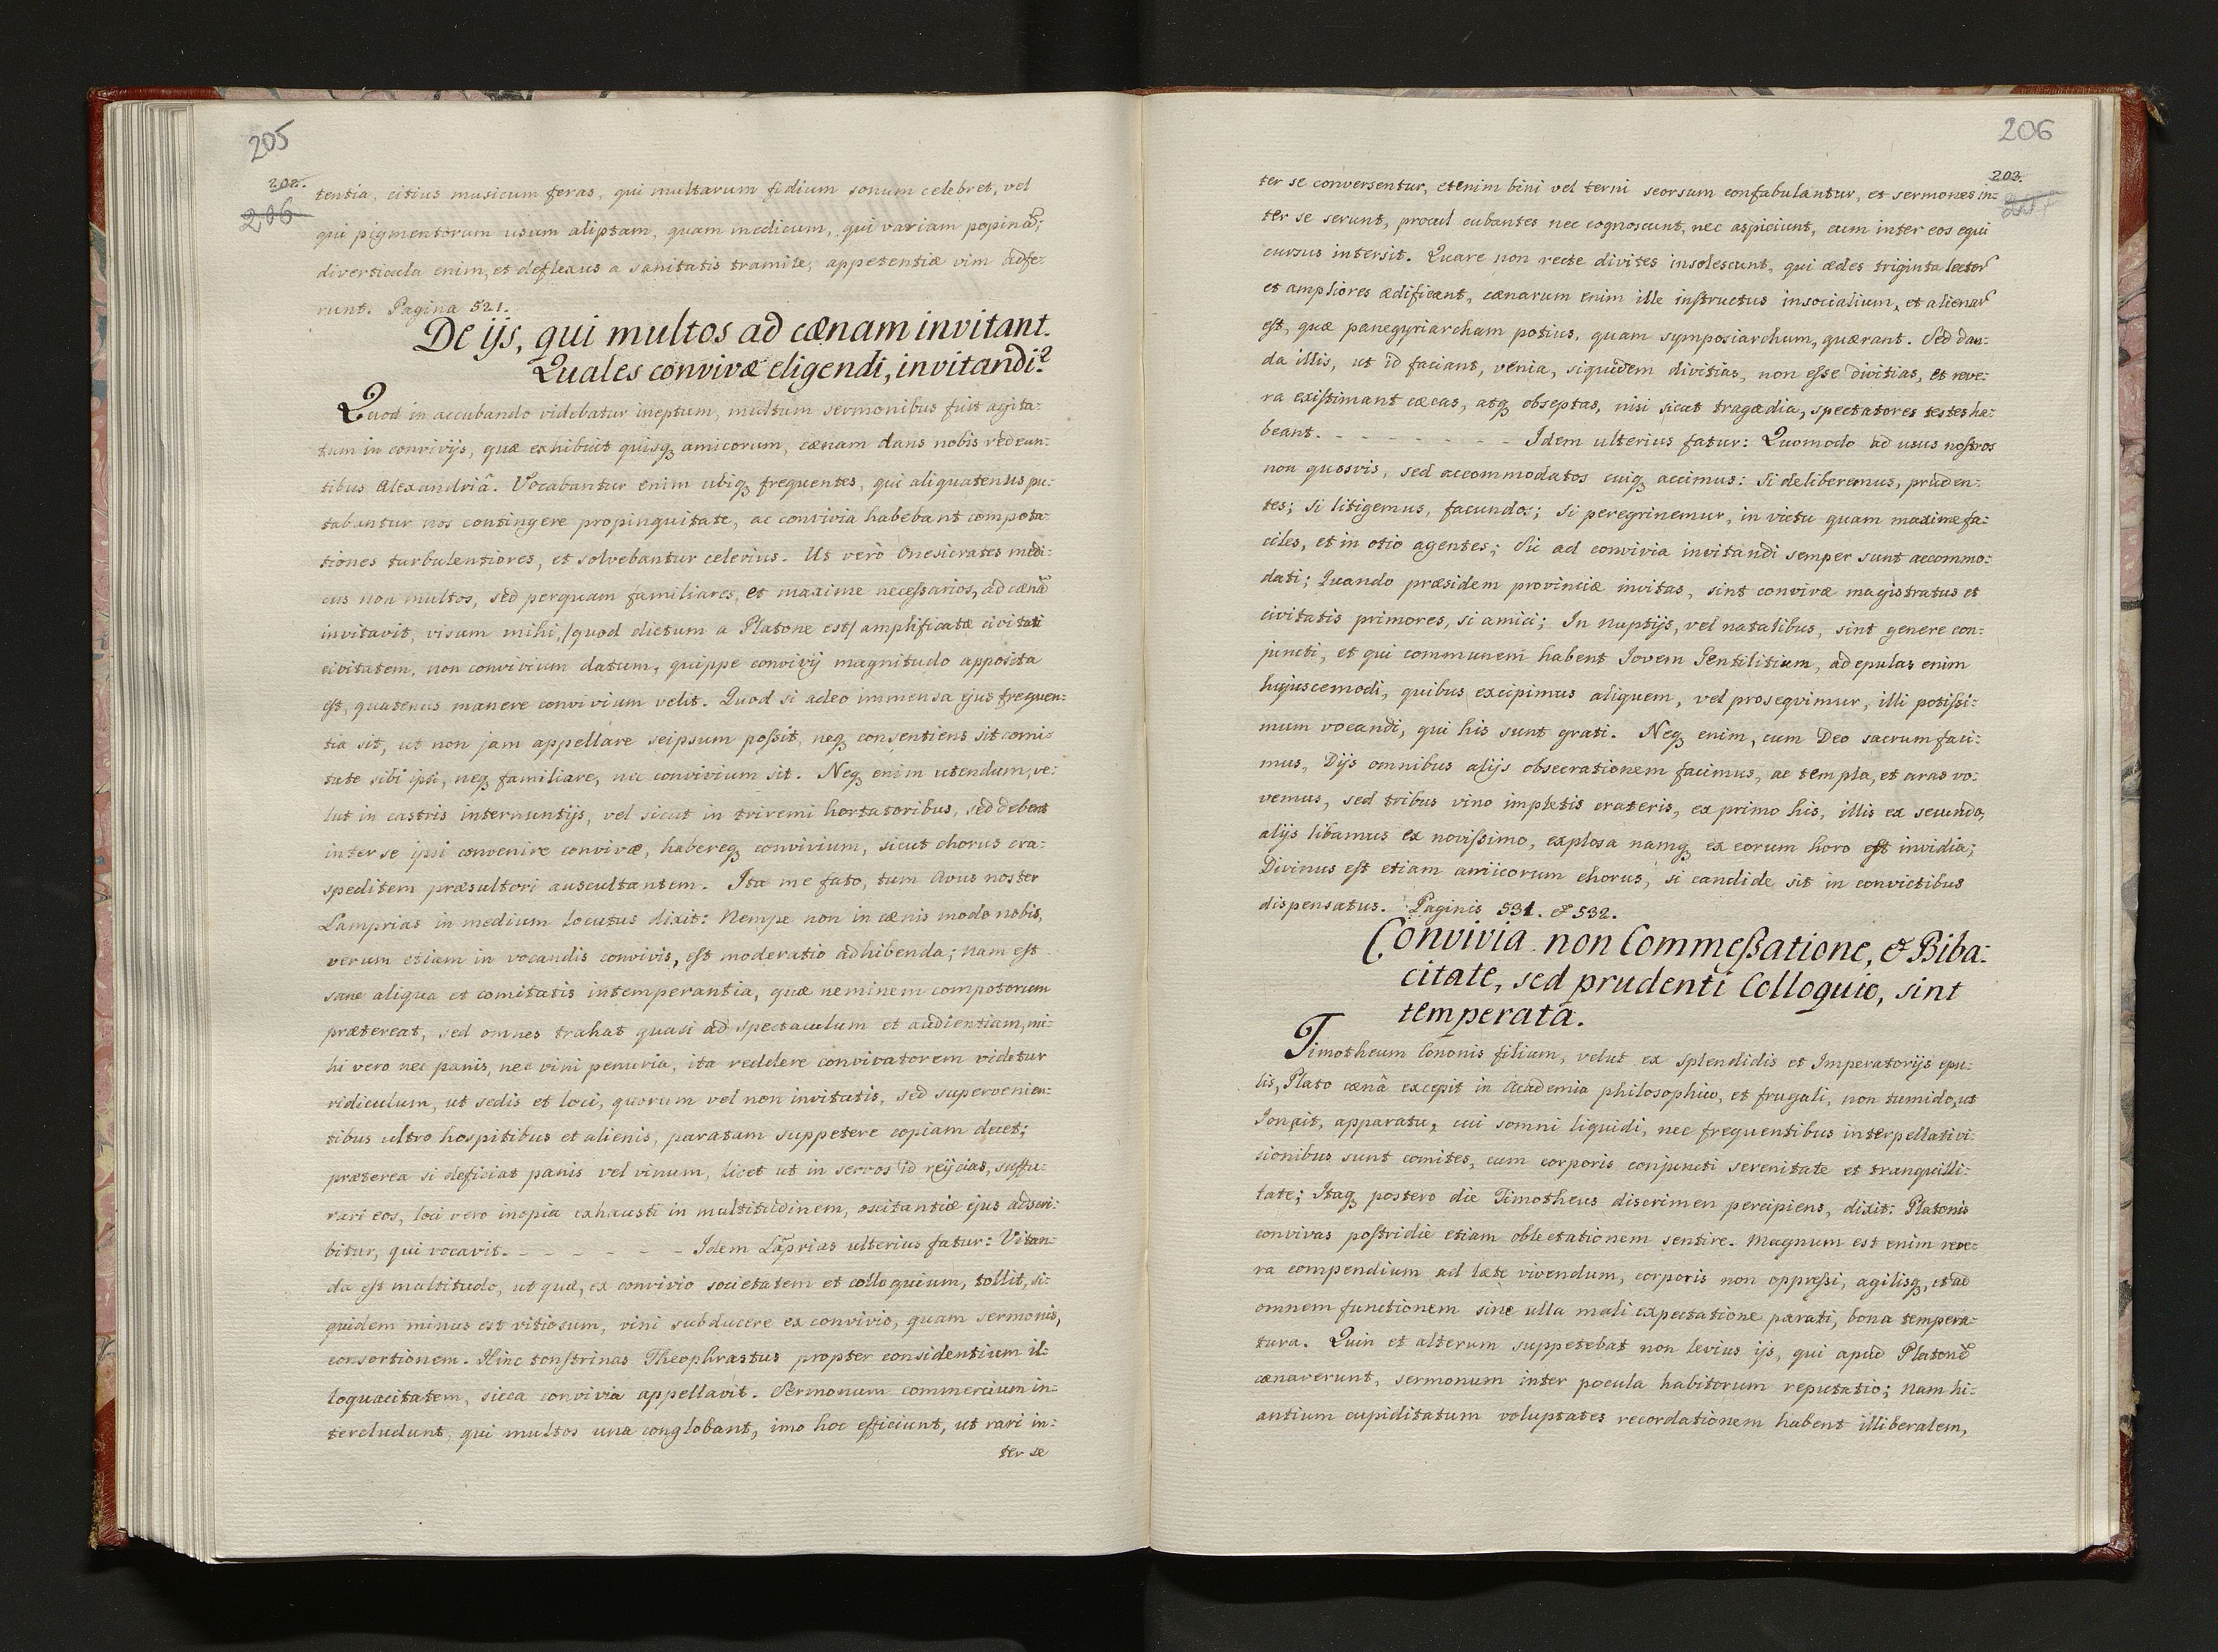 205
202.
206
tentia, citius musicum feras, qui multarum fidium sonum celebret, vel
qui pigmentorum usum aliptam, quam medicum, qui variam popinã;
diverticula enim, et deflexus a sanitatis tramite, appetentiæ vim adfe-
runt. Pagina 521.
De ijs, qui multos ad cænam invitant.
Quales convivæ eligendi, invitandi?
Quod in accubando videbatur ineptum, multum sermonibus fuit agita-
tum in convivijs, quæ exhibuit quisq amicorum, cænam dans nobis redeun-
tibus Alexandriâ. Vocabantur enim ubiq frequentes, qui aliquatenus pu-
tabantur nos contingere propinquitate, ac convivia habebant compota-
tiones turbulentiores, et solvebantur celerius. Ut verò Onesicrates medi-
cus non multos, sed perquam familiares, et maxime necessarios, ad cænã
invitavit, visum mihi, /quod dictum a Platone est/ amplificatæ civitati
civitatem, non convivium datum, quippe convivij magnitudo apposita
est, quatenus manere convivium velit. Quod si adeo immensa ejus frequen-
tia sit, ut non jam appellare seipsum possit, neq consentiens sit comi-
tate sibi ipsi, neq familiare, nec convivium sit. Neq enim utendum, ve-
lut in castris internuntijs, vel sicut in triremi hortatoribus, sed debent
inter se ipsi convenire convivæ, habereq convivium, sicut chorus cra-
speditem præsultori auscultantem. Ita me fato, tum Avus noster
Lamprias in medium locutus dixit: Nempe non in cænis modo nobis,
verum etiam in vocandis convivis, est moderatio adhibenda; nam est
sane aliqua et comitatis intemperantia, quæ neminem compotorum
prætereat, sed omnes trahat quasi ad spectaculum et audientiam, mi-
hi vero nec panis, nec vini penuria, ita reddere convivatorem videtur
ridiculum, ut sedis et loci, quorum vel non invitatis, sed supervenien-
tibus ultro hospitibus et alienis, paratam suppetere copiam decet;
præterea si deficiat panis vel vinum, licet ut in servos id reijcias, suffu-
rari eos, loci vero inopia exhausti in multitudinem, oscitantiæ ejus adscri-
bitur, qui vocavit. - - - - - - Idem Lãprias ulterius fatur: Vitan-
da est multitudo, ut quæ, ex convivio societatem et colloquium, tollit, si-
quidem minus est vitiosum, vini subducere ex convivio, quam sermonis,
consortionem. Hinc tonstrinas Theophrastus propter considentium il-
loquacitatem, sicca convivia appellavit. Sermonum commercium in-
tercludunt, qui multos una conglobant, imo hoc efficiunt, ut rari in-
ter se
206
203.
ter se conversentur, etenim bini vel terni seorsum confabulantur, et sermones in-
ter se serunt, procul cubantes nec cognoscunt, nec aspiciunt, cum inter eos equi
cursus intersit. Quare non recte divites insolescunt, qui ædes triginta lector
et ampliores ædificant, cænarum enim ille instructus insocialium, et alienar
est, quæ panegyriarcham potius, quam symposiarchum, quærant. Sed dan-
da illis, ut id faciant, venia, siquidem divitias, non esse divitias, et reve-
ra existimant cæcas, atq obseptas, nisi sicut tragædia, spectatores testes ha-
beant. - - - - - - - - Idem ulterius fatur: Quomodo ad usus nostros
non quosvis, sed accommodatos cuiq accimus: si deliberemus, pruden-
tes; si litigemus, facundos; si peregrinemur, in victu quam maxime fa-
ciles, et in otio agentes; Sic ad convivia invitandi semper sunt accommo-
dati; Quando præsidem provinciæ invitas, sint convivæ magistratus et
civitatis primores, si amici; In nuptijs, vel natalibus, sint genere con-
juncti, et qui communem habent Jovem Gentilitium, ad epulas enim
hujuscemodi, quibus excipimus aliquem, vel prosequimur, illi potissi-
mum vocandi, qui his sunt grati. Neq enim, cum Deo sacrum faci-
mus, Dijs omnibus alijs obsecrationem facimus, ac templa, et aras vo-
vemus, sed tribus vino impletis crateris, ex primo his, illis ex secundo,
alijs libamus ex novissimo, explosa namq ex eorum horo est invidia;
Divinus est etiam amicorum chorus, si candide sit in convictibus
dispensatus. Paginis 531. & 532.
Convivia non Commessatione, & Biba-
citate, sed prudenti Colloquio, sint
temperata.
Timotheum Cononis filium, velut ex splendidis et Imperatorijs epu-
lis, Plato cænâ excepit in Academia philosophico, et frugali, non tumido, ut
Ion ait, apparatu, cui somni liquidi, nec frequentibus interpellati vi-
sionibus sunt comites, cum corporis conjuncti serenitate et tranquilli-
tate; Itaq postero die Timotheus discrimen percipiens, dixit: Platonis
convivas postridie etiam oblectationem sentire. Magnum est enim reve-
ra compendium ad læte vivendum, corporis non oppressi, agilisq, et ad
omnem functionem sine ulla mali expectatione parati, bona tempera-
tura. Quin et alterum suppetebat non levius ijs, qui apud Platonẽ
cænaverunt, sermonum inter pocula habitorum reputatio; Nam hi-
antium cupiditatum voluptates recordationem habent illiberalem,